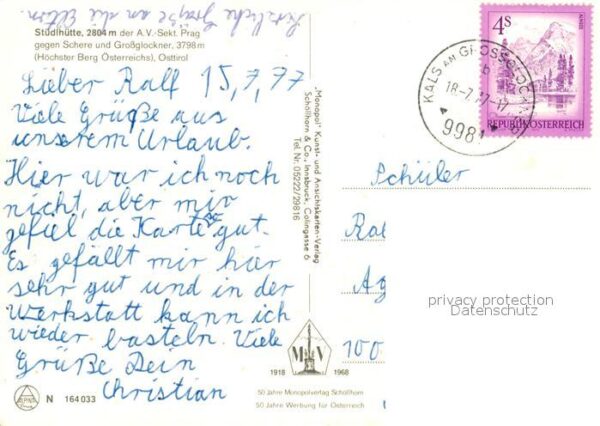 Herzliche Grüße an die Eltern.
Stüdlhütte, 2804 m der A.V.-Sekt. Prag
gegen Schere und Großglockner, 3798 m
(Höchster Berg Österreichs), Osttirol
Lieber Ralf 15,7,77
Viele Grüße aus
unserem Urlaub.
Hier war ich noch
nicht, aber mir
gefiel die Karte so gut.
Es gefällt mir hier
sehr gut und in der
Werkstatt kann ich
wieder basteln. Viele
Grüße Dein
Christian
N 164033
„Monopol" Kunst- und Ansichtskarten-Verlag
Schöllhorn & Co., Innsbruck, Colingasse 6
Tel. Nr. 05222/29816
MV
1918 1968
50 Jahre Monopolverlag Schöllhorn
50 Jahre Werbung für Österreich
4S
ALMSEE
REPUBLIK ÖSTERREICH
KALS AM GROSSGLOCKNER
b
18-7.77-17
9981
Schüler
Ral
Ag
privacy protection
Datenschutz
100